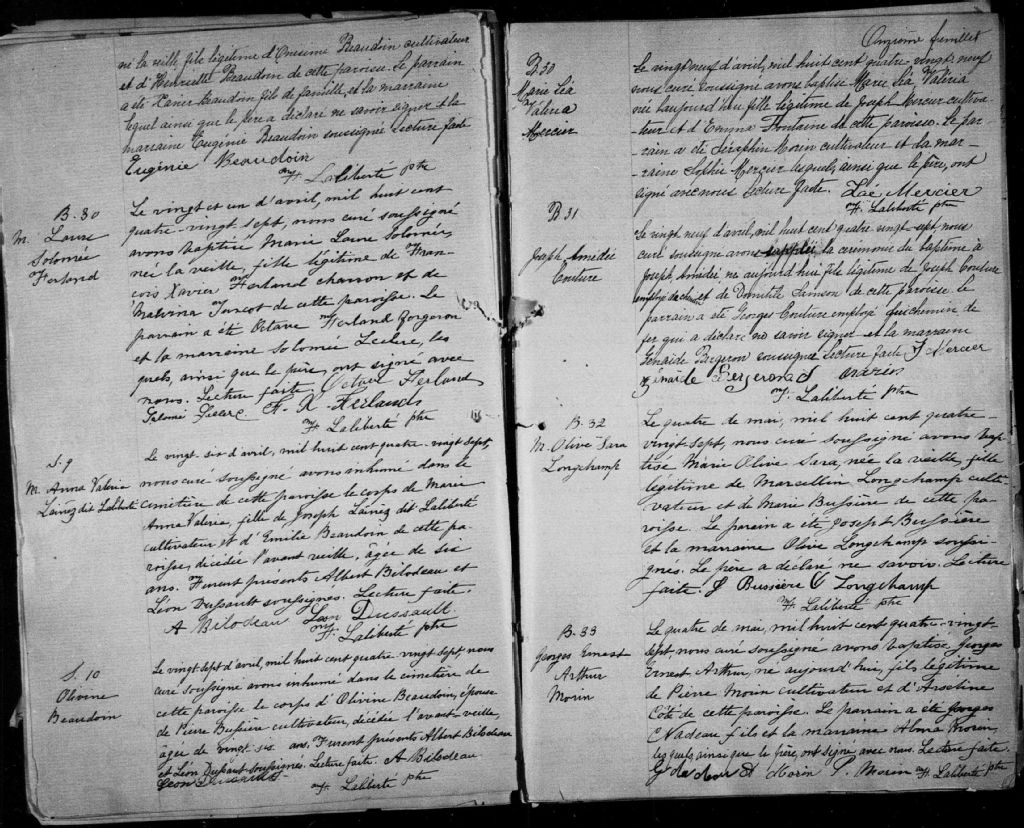 né la veille, fils légitime d'Onesime Beaudoin cultivateur
et d'Henriette Beaudoin de cette paroisse. Le parrain
a été Xavier Beaudoin fils de famille, et la marraine
lequel ainsi que le père a déclaré ne savoir signer et la
marraine Eugénie Beaudoin soussignée Lecture faite
Eugénie Beaudoin
Laliberté ptre
B. 30
M. Laure
Solomée
Ferland
Le vingt et un d'avril, mil huit cent
quatre-vingt sept, nous curé soussigné
avons baptisé Marie Laure Solomée,
née la veille, fille légitime de Fran-
cois Xavier Ferland charron et de
Malvina Turcot de cette paroisse. Le
parrain a été Octave Ferland Forgeron
et la marraine Solomée Leclerc, les
quels, ainsi que le père, ont signé avec
nous. Lecture faite. Octave Ferland
F. X. Ferland
Laliberté ptre
S. 9
M. Anna Valeria
Lainez dit Laliberté
Le vingt-six d'avril, mil huit cent quatre-vingt sept,
nous curé soussigné avons inhumé dans le
cimetière de cette paroisse le corps de Marie
Anna Valeria, fille de Joseph Lainez dit Laliberté
cultivateur et d'Emilie Beaudoin de cette pa-
roisse, décédée l'avant veille, âgée de six
ans. Furent presents Albert Bilodeau et
Léon Dussault soussignés. Lecture faite.
A Bilodeau Léon Dussault.
Laliberté ptre
S. 10
Olivine
Beaudoin
Le vingt sept d'avril, mil huit cent quatre vingt sept, nous
curé soussigné avons inhumé dans le cimetière de
cette paroisse le corps d'Olivine Beaudoin, épouse
de Pierre Bussière cultivateur, décédée l'avant-veille,
âgée de vingt-six ans. Furent presents Albert Bilodeau
et Léon Dussault soussignés. Lecture faite. A Bilodeau
Léon Dussault
Laliberté ptre
feuillet
B 30
Marie Léa
Valeria
Mercier
Le vingt neuf d'avril, mil huit cent quatre-vingt neuf
nous curé soussigné avons baptisé Marie Léa Valeria
née aujourd'hui fille légitime de Joseph Mercier cultiva-
teur et d'Emma Fontaine de cette paroisse. Le par-
-rain a été Séraphin Morin cultivateur et la mar-
-raine Sophie Mercier lesquels, ainsi que le père, ont
signé avec nous Lecture faite. Mercier
Laliberté ptre
B 31
Joseph Amédée
Couture
Le vingt neuf d'avril, mil huit cent quatre vingt-sept, nous
curé soussigné avons suppléé la cérémonie du baptême à
Joseph Amédée né aujourd'hui fils légitime de Joseph Couture
et de Domitile Samson de cette paroisse le
parrain a été Georges Couture employé du chemin de
fer qui a déclaré ne savoir signer et la marraine
Zénaïde Bergeron soussignée Lecture faite J Mercier
Zénaïde Bergeron
Laliberté ptre
B. 32
M. Olive Sara
Longchamp
Le quatre de mai, mil huit cent quatre-
vingt-sept, nous curé soussigné avons bap
tisé Marie Olive Sara, née la veille, fille
légitime de Marcellin Longchamp culti-
vateur et de Marie Bussière de cette pa-
roisse. Le parrain a été Joseph Bussière
et la marraine Olive Longchamp soussi-
gnés. Le père a déclaré ne savoir. Lecture
faite. J Bussière O Longchamp
Laliberté ptre
B. 33
Georges Ernest
Arthur
Morin
Le quatre de mai, mil huit cent quatre-vingt-
sept, nous curé soussigné avons baptisé Georges
Ernest Arthur, né aujourd'hui, fils légitime
de Pierre Morin cultivateur et d'Arseline
Côté de cette paroisse. Le parrain a été Georges
Nadeau fils et la marraine Alma Morin,
lesquels, ainsi que le père, ont signé avec nous. Lecture faite.
Morin P. Morin Laliberté ptre